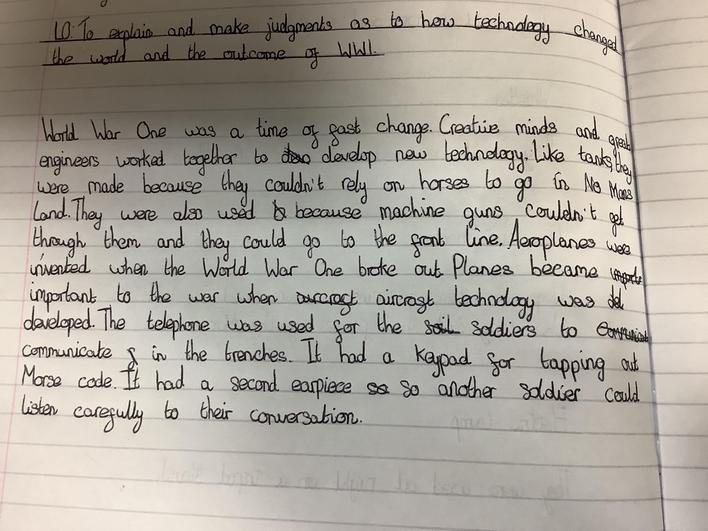 LO: To explain and make judgments as to how technology changed
the world and the outcome of WWI.
World War One was a time of fast change. Creative minds and great
engineers worked together to develop new technology. Like tanks, they
were made because they couldn't rely on horses to go in No Mans
Land. They were also used because machine guns couldn't get
through them and they could go to the front line. Aeroplanes were
invented when the World War One broke out. Planes became
important to the war when aircraft technology was
developed. The telephone was used for the soldiers to
communicate in the trenches. It had a keypad for tapping out
Morse code. It had a second earpiece so another soldier could
listen carefully to their conversation.